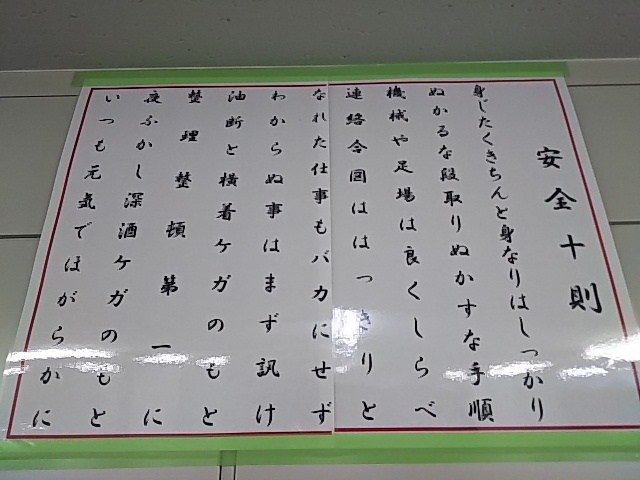 安全十則
身じたくきちんと身なりはしっかり
ぬかるな段取りぬかすな手順
機械や足場は良くしらべ
連絡合図ははっきりと
なれた仕事もバカにせず
わからぬ事はまず訊け
油断と横着ケガのもと
整理整頓第一に
夜ふかし深酒ケガのもと
いつも元気でほがらかに